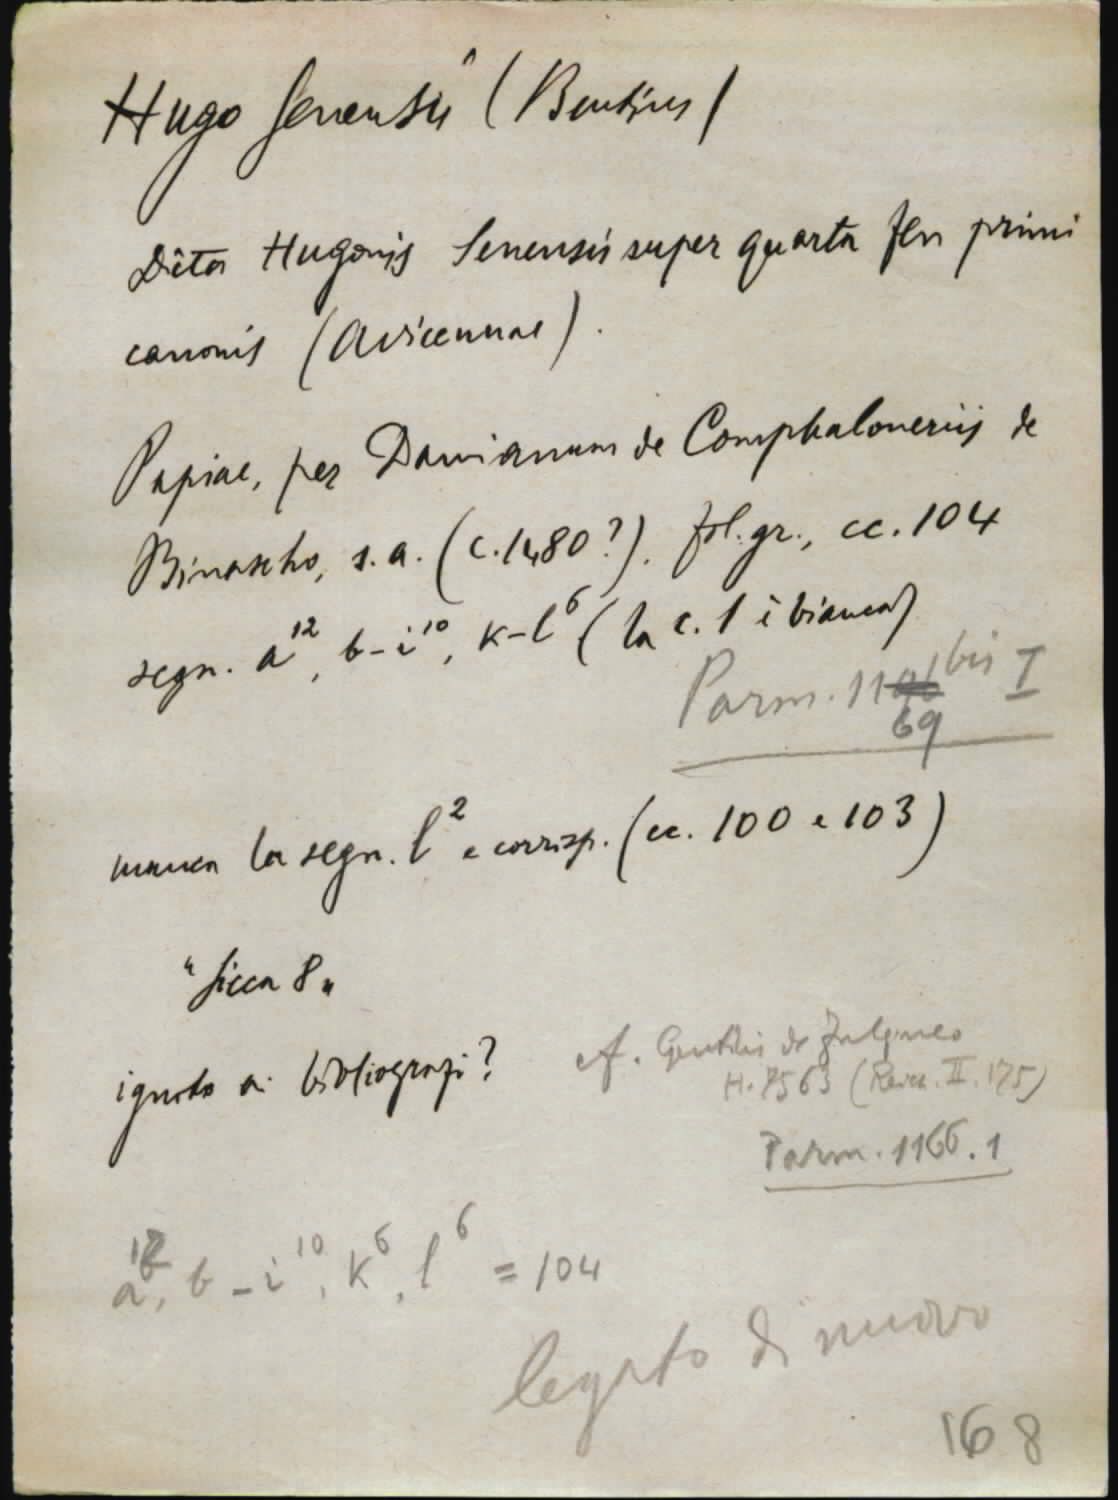 Hugo Senensis (Bentius)
Dicta Hugonis Senensis super quarta fen primi
canonis (Avicennae).
Papiae, per Damianum de Comphaloneriis de
Binascho, s.a. (c. 1480?). fol. gr., cc. 104
segn. a¹², b-i¹⁰, k-l⁶ (la c. 1 è bianca)
Parm. 1169 bis I
manca la segn. l² e corrisp. (cc. 100 e 103)
"Sicca 8"
ignoto ai bibliografi?
cf. Gentilis de Fulgineo
H. 7563 (Reich. II. 175)
Parm. 1166.1
a¹², b-i¹⁰, k⁶, l⁶ = 104
legato di nuovo
168